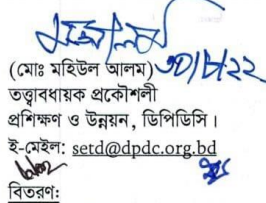 (মোঃ মহিউল আলম)
তত্ত্বাবধায়ক প্রকৌশলী
প্রশিক্ষণ ও উন্নয়ন, ডিপিডিসি।
ই-মেইল: setd@dpdc.org.bd
বিতরণ: